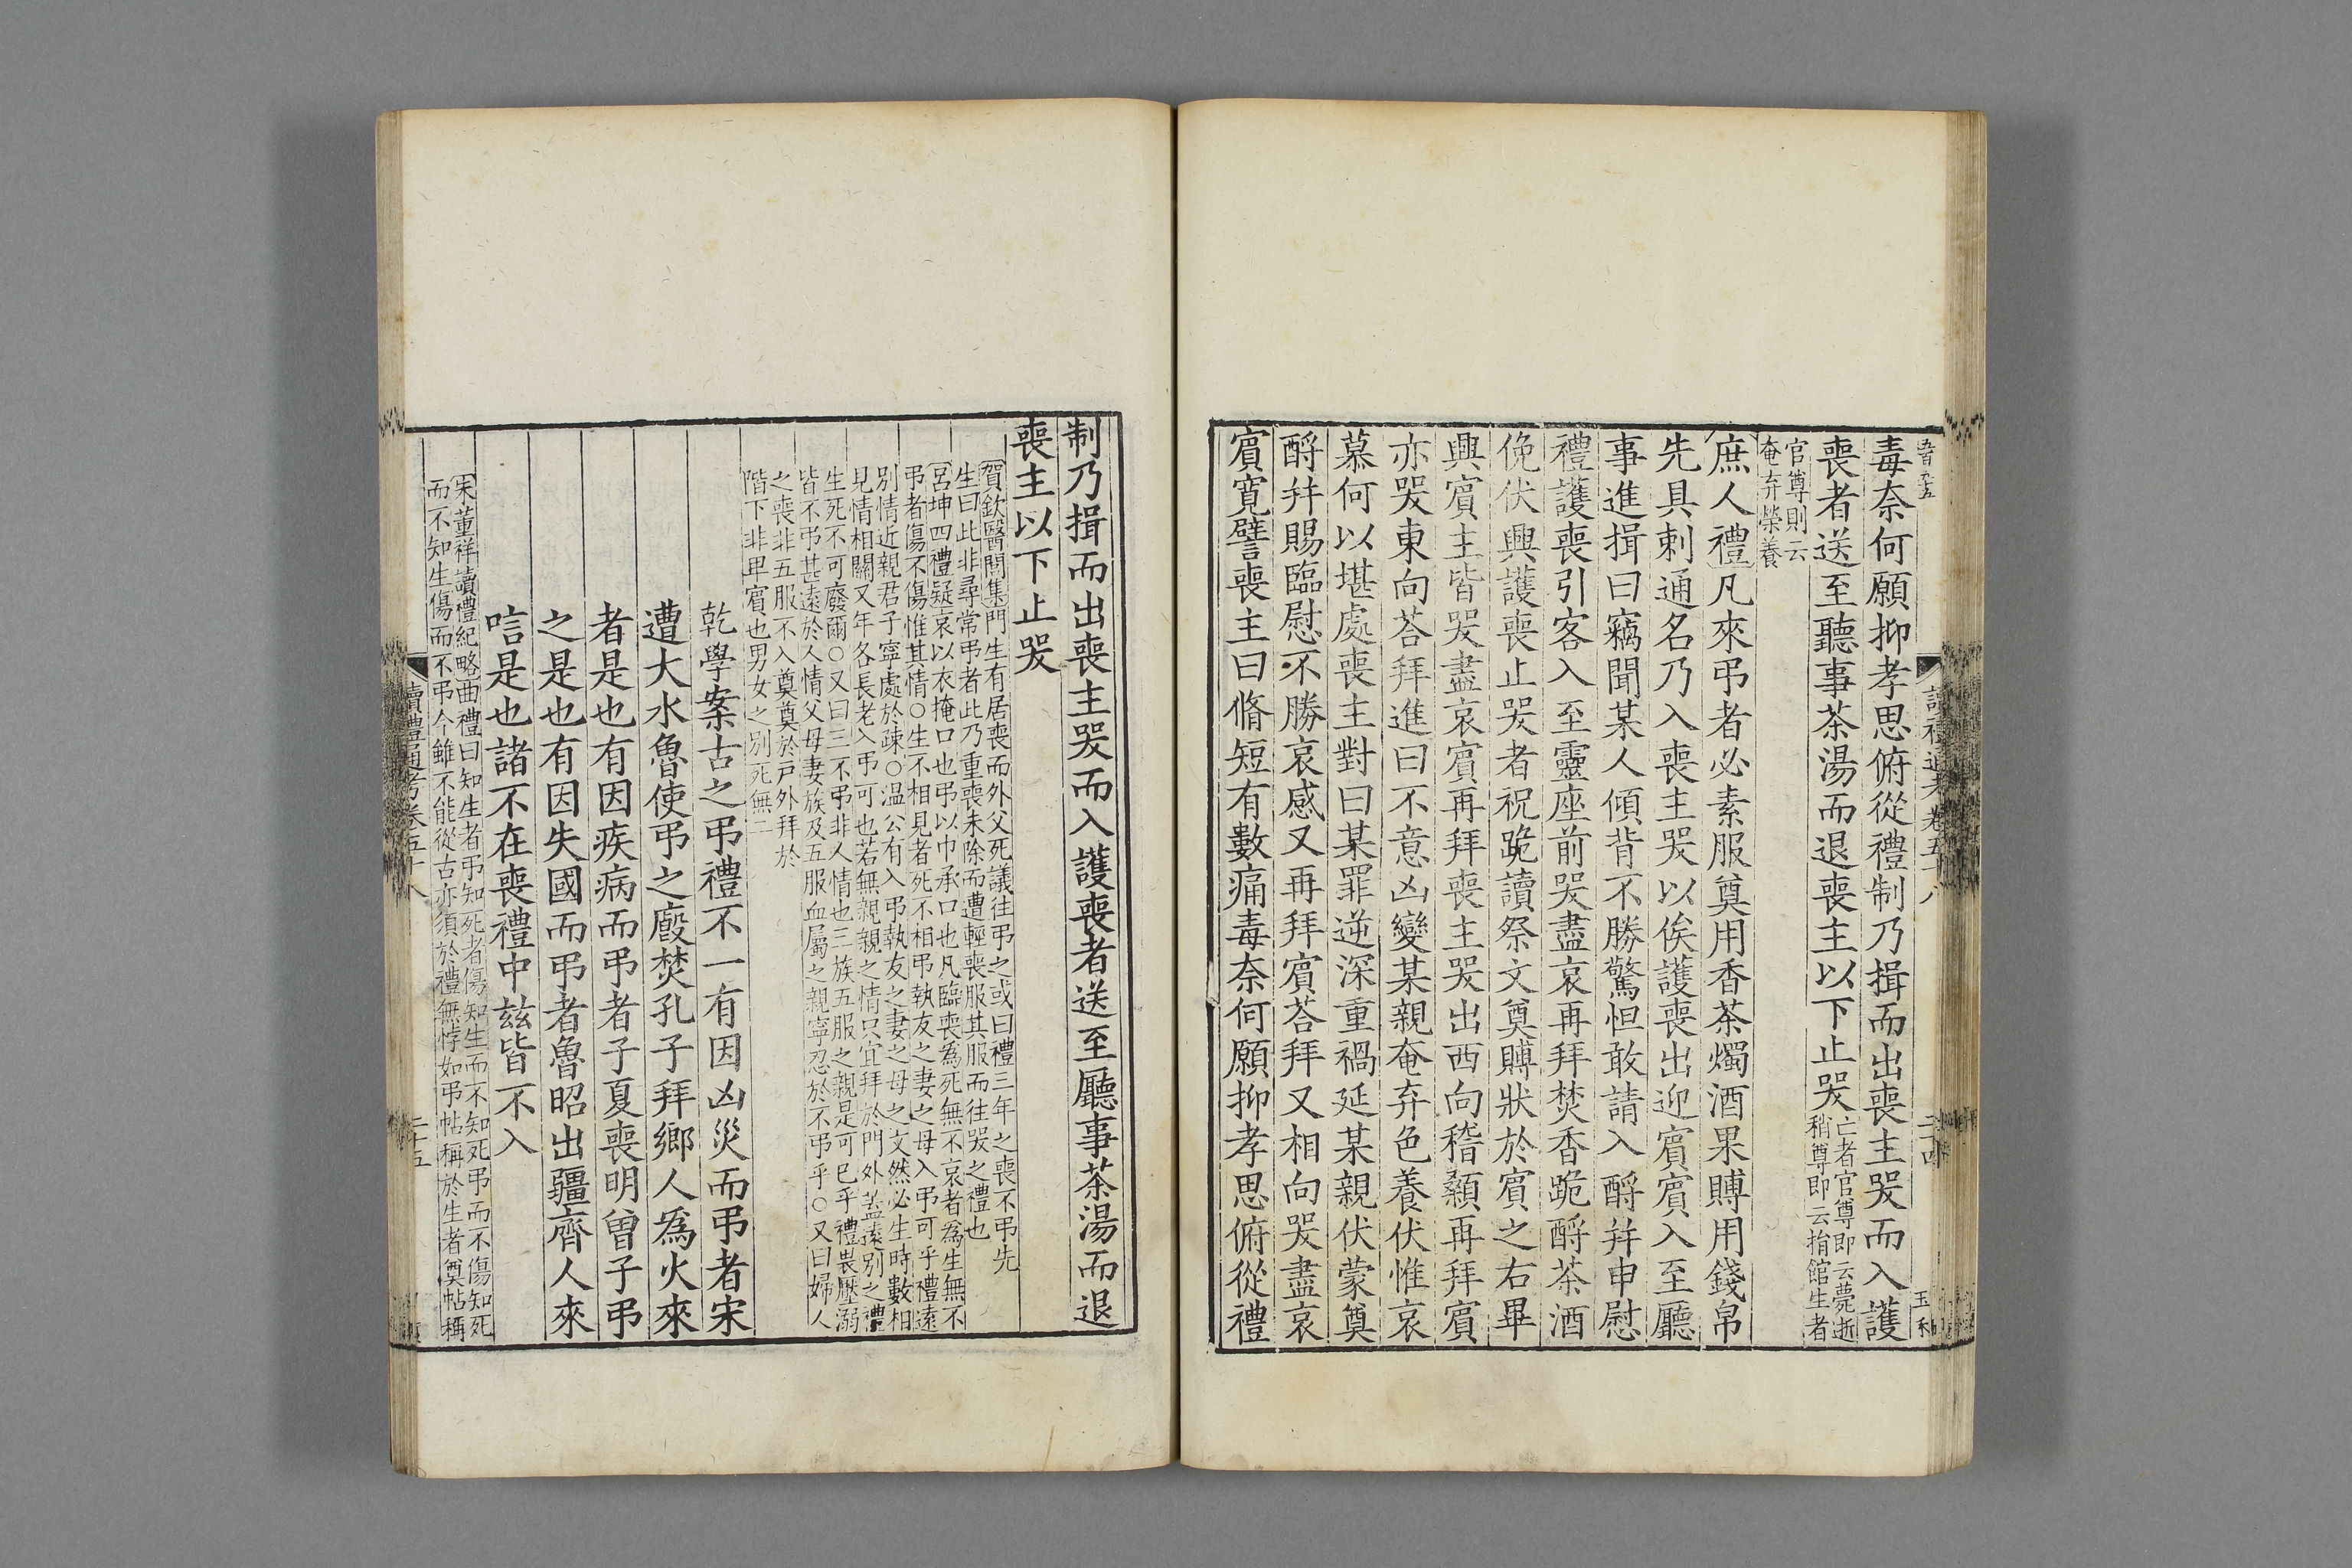 毒奈何願抑孝思俯從禮制乃揖而出喪主哭而入護
喪者送至聽事茶湯而退喪主以下止哭亡者官尊即云薨逝
稍尊即云捐館生者
官尊則云
奄弃榮養
庶人禮凡來弔者必素服奠用香茶燭酒果賻用錢帛
先具刺通名乃入喪主哭以俟護喪出迎賓賓入至廳
事進揖曰竊聞某人傾背不勝驚怛敢請入酹并申慰
禮護喪引客入至靈座前哭盡哀再拜焚香跪酹茶酒
俛伏興護喪止哭者祝跪讀祭文奠賻狀於賓之右畢
興賓主皆哭盡哀賓再拜喪主哭出西向稽顙再拜賓
亦哭東向荅拜進曰不意凶變某親奄弃色養伏惟哀
慕何以堪處喪主對曰某罪逆深重禍延某親伏蒙奠
酹并賜臨慰不勝哀感又再拜賓荅拜又相向哭盡哀
賓寬譬喪主曰脩短有數痛毒奈何願抑孝思俯從禮
制乃揖而出喪主哭而入護喪者送至廳事茶湯而退
喪主以下止哭
賀欽醫閭集門生有居喪而外父死議往弔之或曰禮三年之喪不弔先
生曰此非尋常弔者此乃重喪未除而遭輕喪服其服而往哭之禮也
呂坤四禮疑哀以衣掩口也弔以巾承口也凡臨喪爲死無不哀者爲生無不
弔者傷不傷惟其情○生不相見者死不相弔執友之妻之母入弔可乎禮遠
別情近親君子寧處於疎○温公有入弔執友之妻之母之文然必生時數相
見情相關又年各長老入弔可也若無親親之情只宜拜於門外蓋遠別之禮
生死不可廢爾○又曰三不弔非人情也三族五服之親是可已乎禮畏壓溺
皆不弔甚遠於人情父母妻族及五服血屬之親寧忍於不弔乎○又曰婦人
之喪非五服不入奠奠於戸外拜於
階下非卑賓也男女之别死無二
乾學案古之弔禮不一有因凶災而弔者宋
遭大水魯使弔之廄焚孔子拜鄉人爲火來
者是也有因疾病而弔者子夏喪明曾子弔
之是也有因失國而弔者魯昭出疆齊人來
唁是也諸不在喪禮中兹皆不入
宋董祥讀禮紀略曲禮曰知生者弔知死者傷知生而不知死弔而不傷知死
而不知生傷而不弔今雖不能從古亦須於禮無悖如弔帖稱於生者奠帖稱
讀禮通考卷五十八
二十五